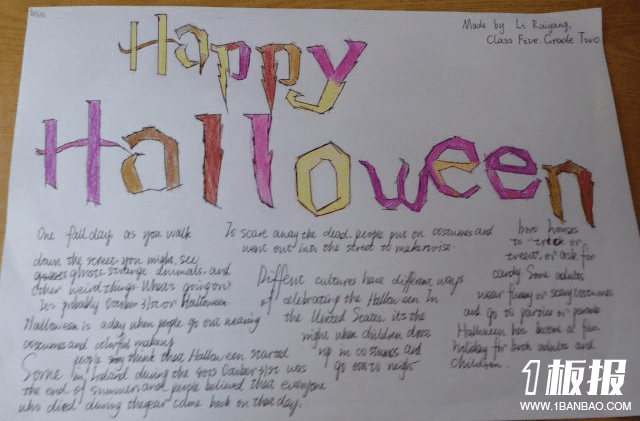 Made by Li Ruiyang,
Class Five Grade Two
Happy
Halloween
One fall day as you walk
down the street you might see
ghosts strange animals, and
other weird things. What's going on
Its probably October 31st or Halloween
Halloween is a day when people go out wearing
costumes and colorful makeup
Some people think that Halloween started
in Ireland during the October 31st was
the end of summer and people believed that everyone
who died during the year came back on that day.
To scare away the dead, people put on costumes and
went out into the street to make noise.
Different cultures have different ways
of celebrating the Halloween In
the United States, it's the
night when children dress
up in costumes and
go out to neigh
bors houses
to trick or
treat, or ask for
candy Some adults
wear funny or scary costumes
and go to parties or parade
Halloween has become a fun
holiday for both adults and
children.
1板报
WWW.1BANBAO.COM